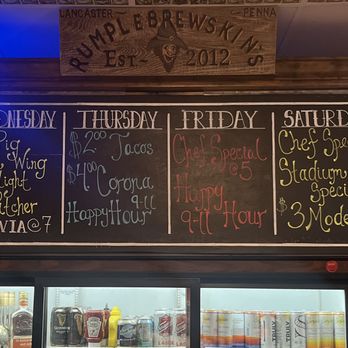 LANCASTER PENNA
RUMPLEBREWSKIN'S
EST- 2012
DNESDAY
Pig
Wing
light
itcher
VIA@7
THURSDAY
$2.00 Tacos
$4.00 Corona
9-11
Happy Hour
FRIDAY
Chef Special
@5
Happy
9-11 Hour
SATURD
Chef Spe
Stadium
Speci
$3 Mode